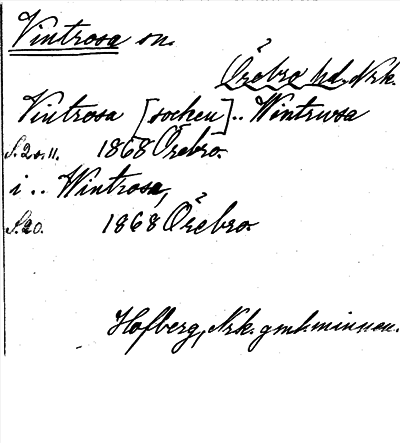 Vintrosa sn.
Örebro hd, Nrk.
Vintrosa [socken].. Wintrwsa
S. 2 o. 11. 1868 Örebro.
i .. Wintrosa,
S. 20. 1868 Örebro.
Hofberg, Nrk. gml. minnen.